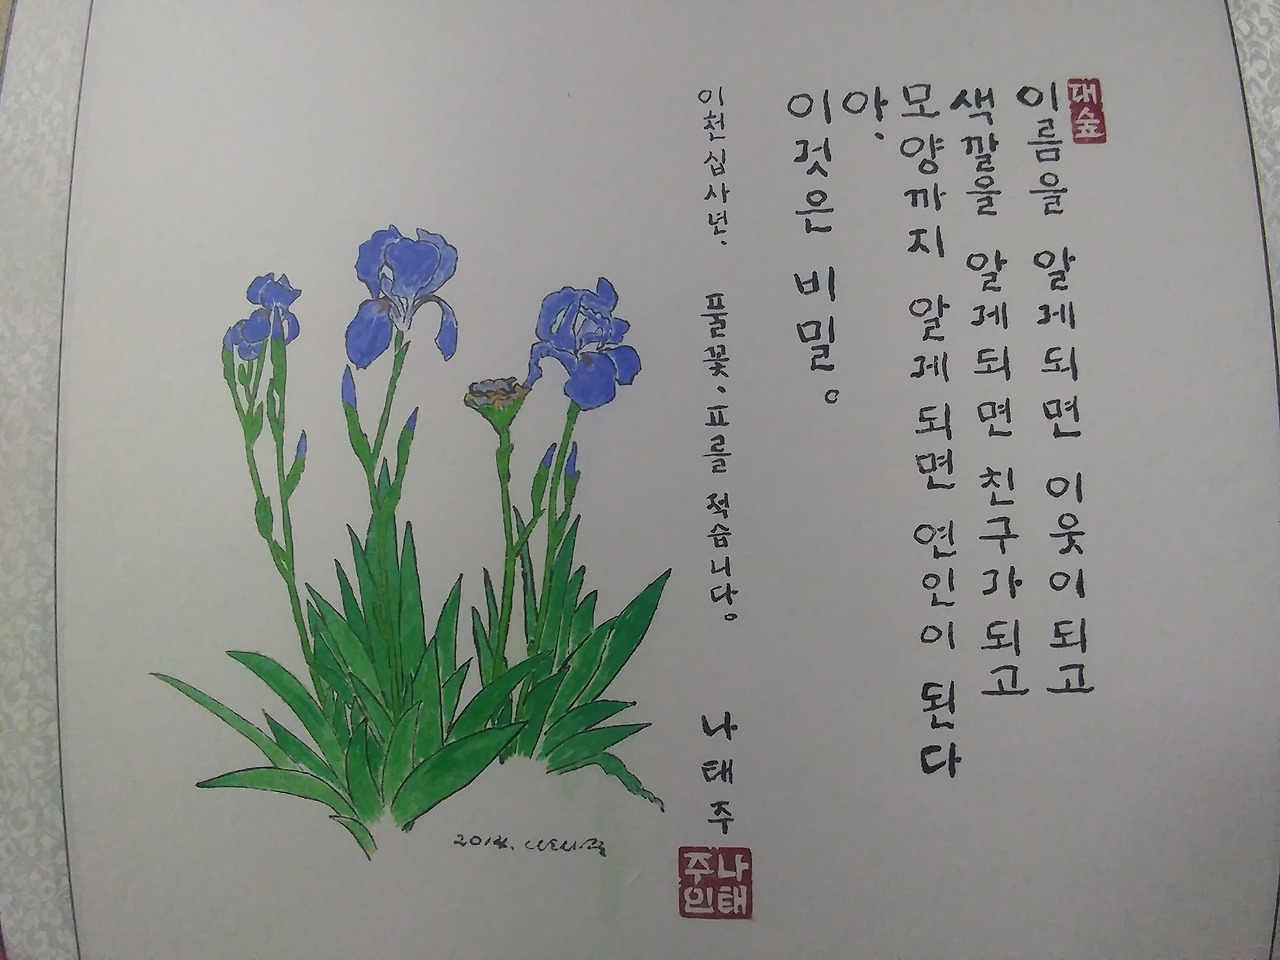 대숲
이름을 알게되면 이웃이 되고
색깔을 알게되면 친구가 되고
모양까지 알게 되면 연인이 된다
아.
이것은 비밀。
이천십사년. 풀꽃、표를 적습니다。 나태주
나태주인
2014. 나태주